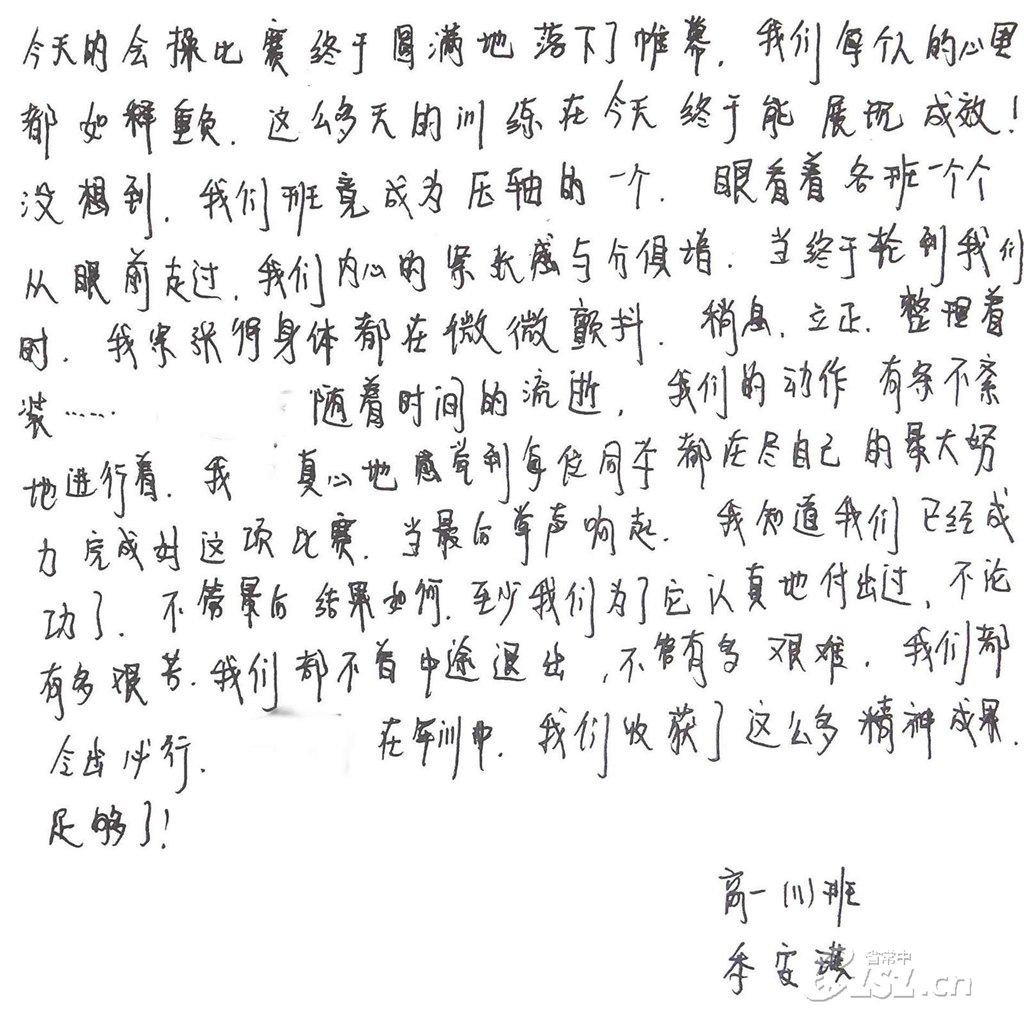 今天的会操比赛终于圆满地落下了帷幕。我们每个人的心里
都如释重负。这么多天的训练在今天终于能展现成效！
没想到，我们班竟成为压轴的一个。眼看着各班一个个
从眼前走过，我们内心的紧张感与分俱增。当终于轮到我们
时，我紧张得身体都在微微颤抖。稍息，立正，整理着
装…… 随着时间的流逝，我们的动作有条不紊
地进行着。我 真心地感觉到每位同学都在尽自己的最大努
力完成好这项比赛。当最后掌声响起，我知道我们已经成
功了。不管最后结果如何，至少我们为了它认真地付出过，不论
有多艰苦，我们都不曾中途退出，不管有多艰难，我们都
令出必行。 在军训中，我们收获了这么多精神成果，
足够了！
高一(11)班
季安
省常中
.cn